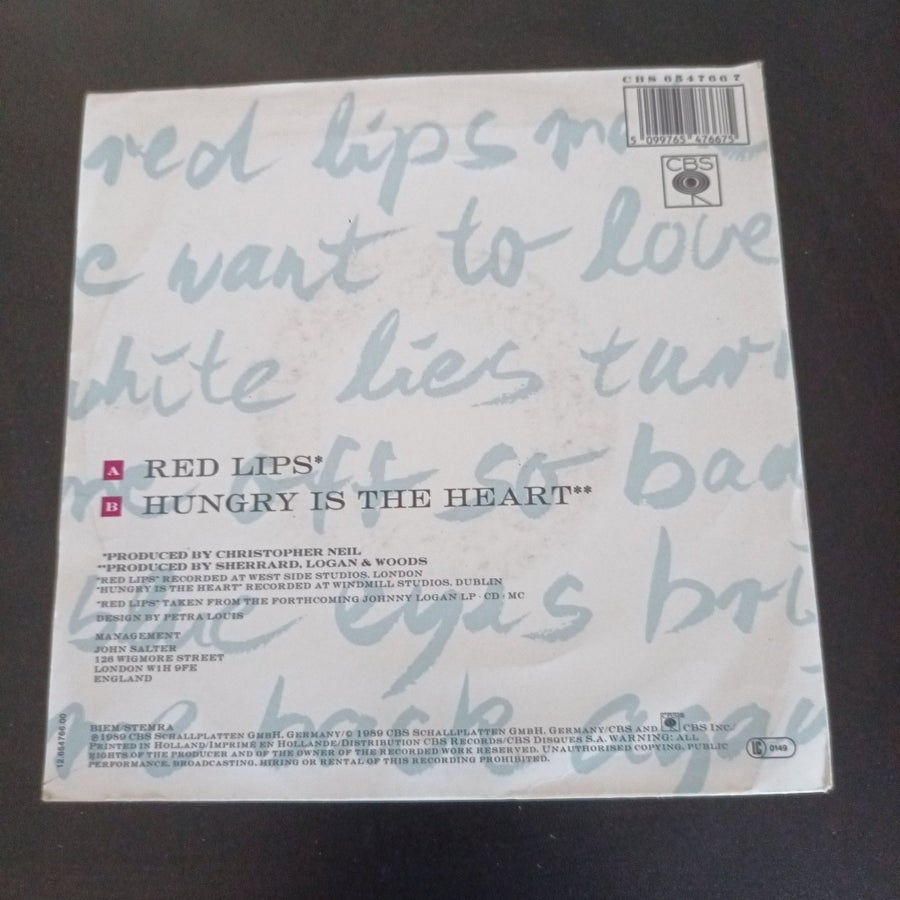 CBS 654766 7
5 099765 476675
CBS
red lips ma
e want to love
white lies turn
me off so bad
blue eyes bri
me back again
A RED LIPS*
B HUNGRY IS THE HEART**
*PRODUCED BY CHRISTOPHER NEIL
**PRODUCED BY SHERRARD, LOGAN & WOODS
"RED LIPS" RECORDED AT WEST SIDE STUDIOS, LONDON
"HUNGRY IS THE HEART" RECORDED AT WINDMILL STUDIOS, DUBLIN
"RED LIPS" TAKEN FROM THE FORTHCOMING JOHNNY LOGAN LP · CD · MC
DESIGN BY PETRA LOUIS
MANAGEMENT
JOHN SALTER
126 WIGMORE STREET
LONDON W1H 9FE
ENGLAND
12.654766.00
BIEM/STEMRA
℗ 1989 CBS SCHALLPLATTEN GMBH, GERMANY/© 1989 CBS SCHALLPLATTEN GMBH, GERMANY/CBS AND CBS INC./
PRINTED IN HOLLAND/IMPRIMÉ EN HOLLANDE/DISTRIBUTION CBS RECORDS/CBS DISQUES S.A. WARNING: ALL
RIGHTS OF THE PRODUCER AND OF THE OWNER OF THE RECORDED WORK RESERVED. UNAUTHORISED COPYING, PUBLIC
PERFORMANCE, BROADCASTING, HIRING OR RENTAL OF THIS RECORDING PROHIBITED.
LC 0149